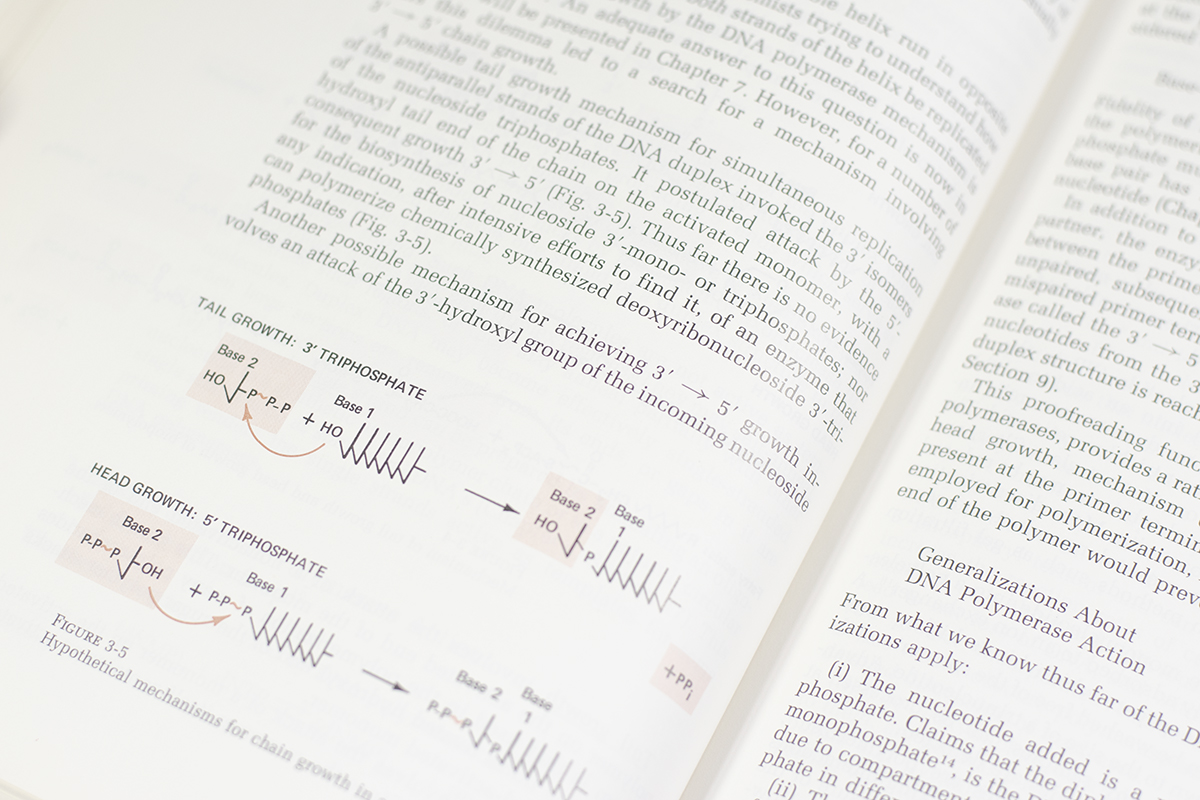 le helix run in opposite
mists trying to understand how
both strands of the helix be replicated
wth by the DNA polymerase mechanism is
An adequate answer to this question is now in
will be presented in Chapter 7. However, for a number of
this dilemma led to a search for a mechanism involving
5′ → 5′ chain growth.
A possible tail growth mechanism for simultaneous replication
of the antiparallel strands of the DNA duplex invoked the 3′ isomers
of the nucleoside triphosphates. It postulated attack by the 5′-
hydroxyl tail end of the chain on the activated monomer, with a
consequent growth 3′ → 5′ (Fig. 3-5). Thus far there is no evidence
for the biosynthesis of nucleoside 3′-mono- or triphosphates; nor
any indication, after intensive efforts to find it, of an enzyme that
can polymerize chemically synthesized deoxyribonucleoside 3′-tri-
phosphates (Fig. 3-5).
Another possible mechanism for achieving 3′ → 5′ growth in-
volves an attack of the 3′-hydroxyl group of the incoming nucleoside
TAIL GROWTH: 3′ TRIPHOSPHATE
Base 2
HO P~P-P
+ HO
Base 1
Base 2 Base
1
HO P
HEAD GROWTH: 5′ TRIPHOSPHATE
Base 2
P-P~P OH
+ P-P~P
Base 1
Base 2 Base
1
P-P~P P
+PPi
FIGURE 3-5
Hypothetical mechanisms for chain growth in
fidelity of
the polymer
phosphate
base pair has
nucleotide (Cha
In addition to
partner, the enzy
between the prime
unpaired, subseque
mispaired primer ter
ase called the 3′ → 5
nucleotides from the 3
duplex structure is reach
Section 9).
This proofreading func
polymerases, provides a rat
head growth, mechanism
present at the primer termin
employed for polymerization,
end of the polymer would prev
Generalizations About
DNA Polymerase Action
From what we know thus far of the D
izations apply:
(i) The nucleotide added is a
phosphate. Claims that the dip
monophosphate¹⁴, is the
due to compartment
phate in differ
(ii) Th